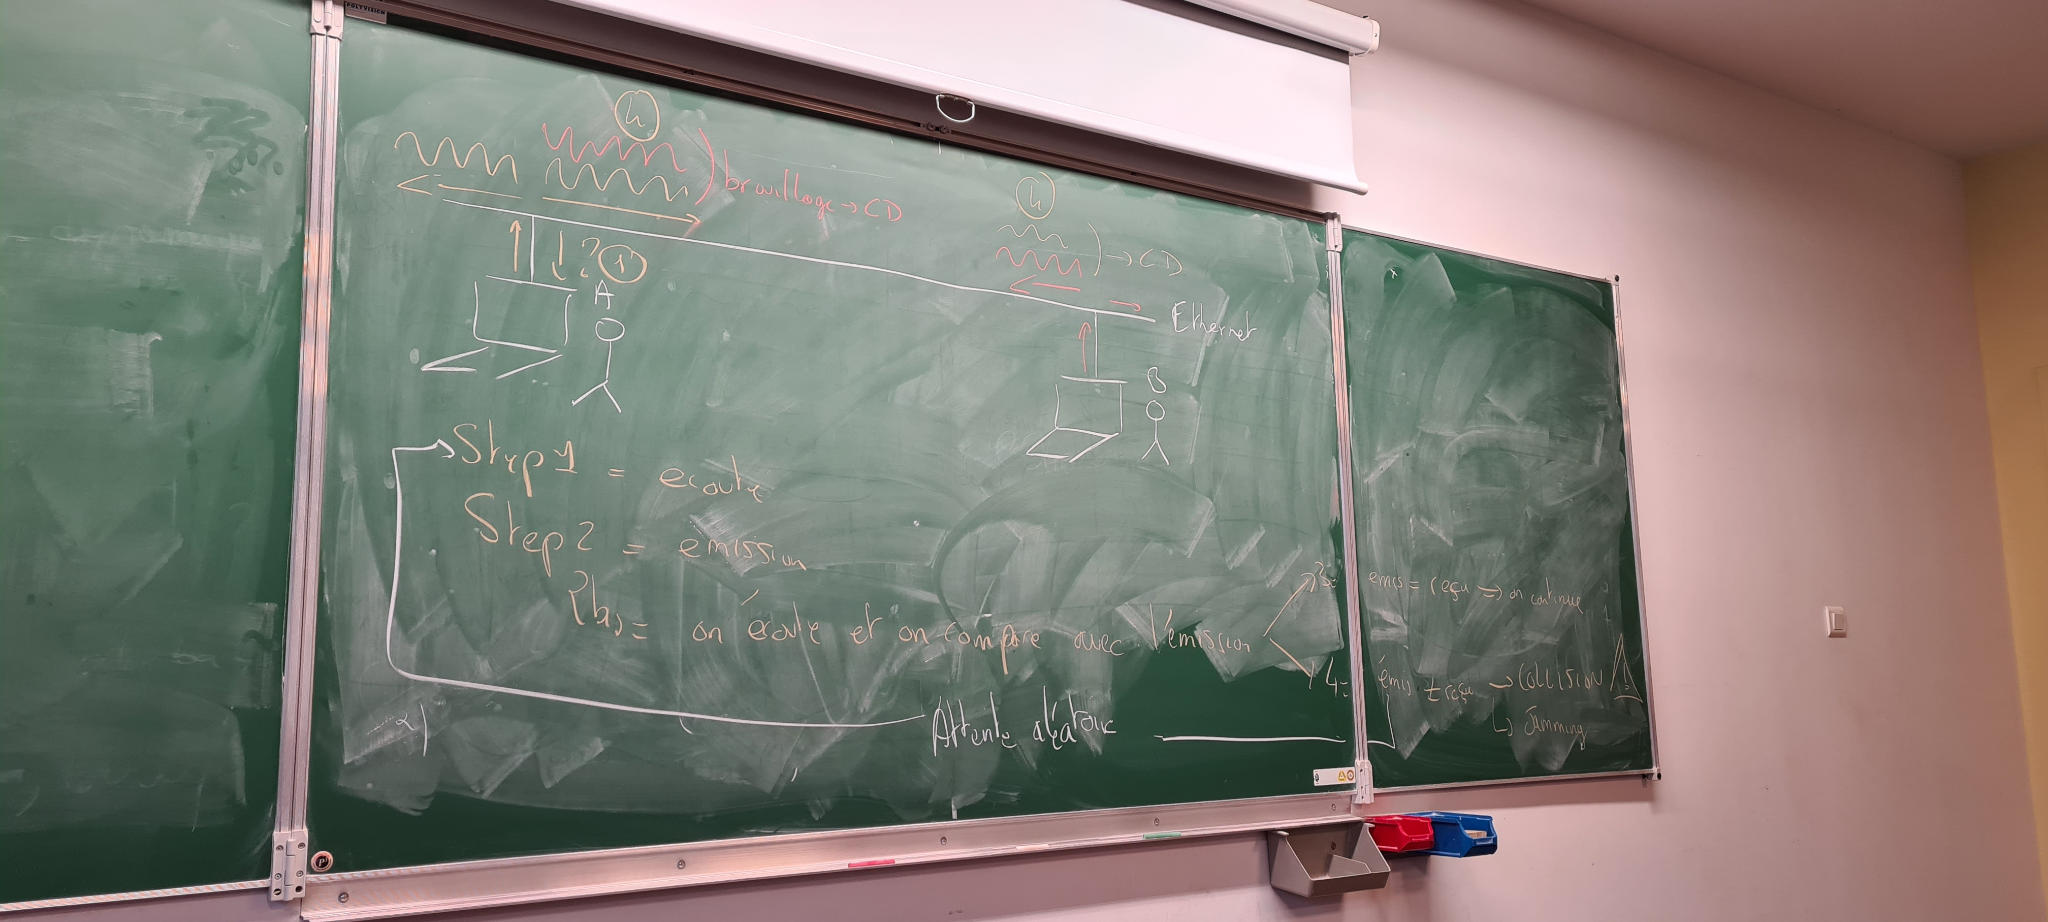 POLYVISION
4
brouillage → CD
4
→ CD
! ? 1
A
Ethernet
B
Step 1 = ecoute
Step 2 = emission
2bis = on écoute et on compare avec l'émission
3= emis = reçu → on continue
4= émis ≠ reçu → COLLISION
↳ Jamming
Attente aléatoire